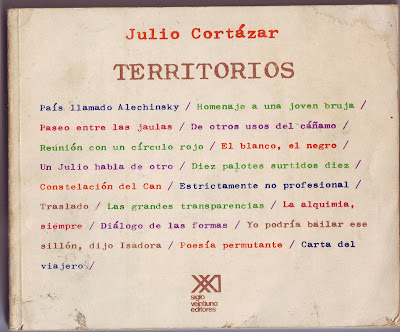 Julio Cortázar
TERRITORIOS
País llamado Alechinsky / Homenaje a una joven bruja /
Paseo entre las jaulas / De otros usos del cáñamo /
Reunión con un círculo rojo / El blanco, el negro /
Un Julio habla de otro / Diez palotes surtidos diez /
Constelación del Can / Estrictamente no profesional /
Traslado / Las grandes transparencias / La alquimia,
siempre / Diálogo de las formas / Yo podría bailar ese
sillón, dijo Isadora / Poesía permutante / Carta del
viajero /
XXI
siglo
veintiuno
editores